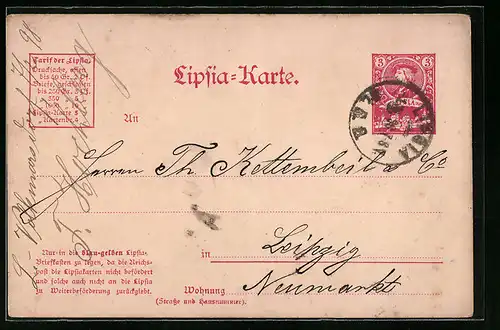 Tarif der Lipsia.
Drucksache, offen
bis 50 Gr. 2 Pf.
Briefe, geschlossen
bis 250 Gr. 3 Pf.
Lipsia-Karte 3
Kartenbr. 4
Lipsia=Karte.
3 3
An
Herren Th. Kettembeil & Co
in Leipzig
Neumarkt
Wohnung
(Straße und Hausnummer.)
Nur in die blau-gelben Lipsia-
Briefkasten zu legen, da die Reichs-
post die Lipsiakarten nicht befördert
und solche auch nicht an die Lipsia
zu Weiterbeförderung zurückgiebt.